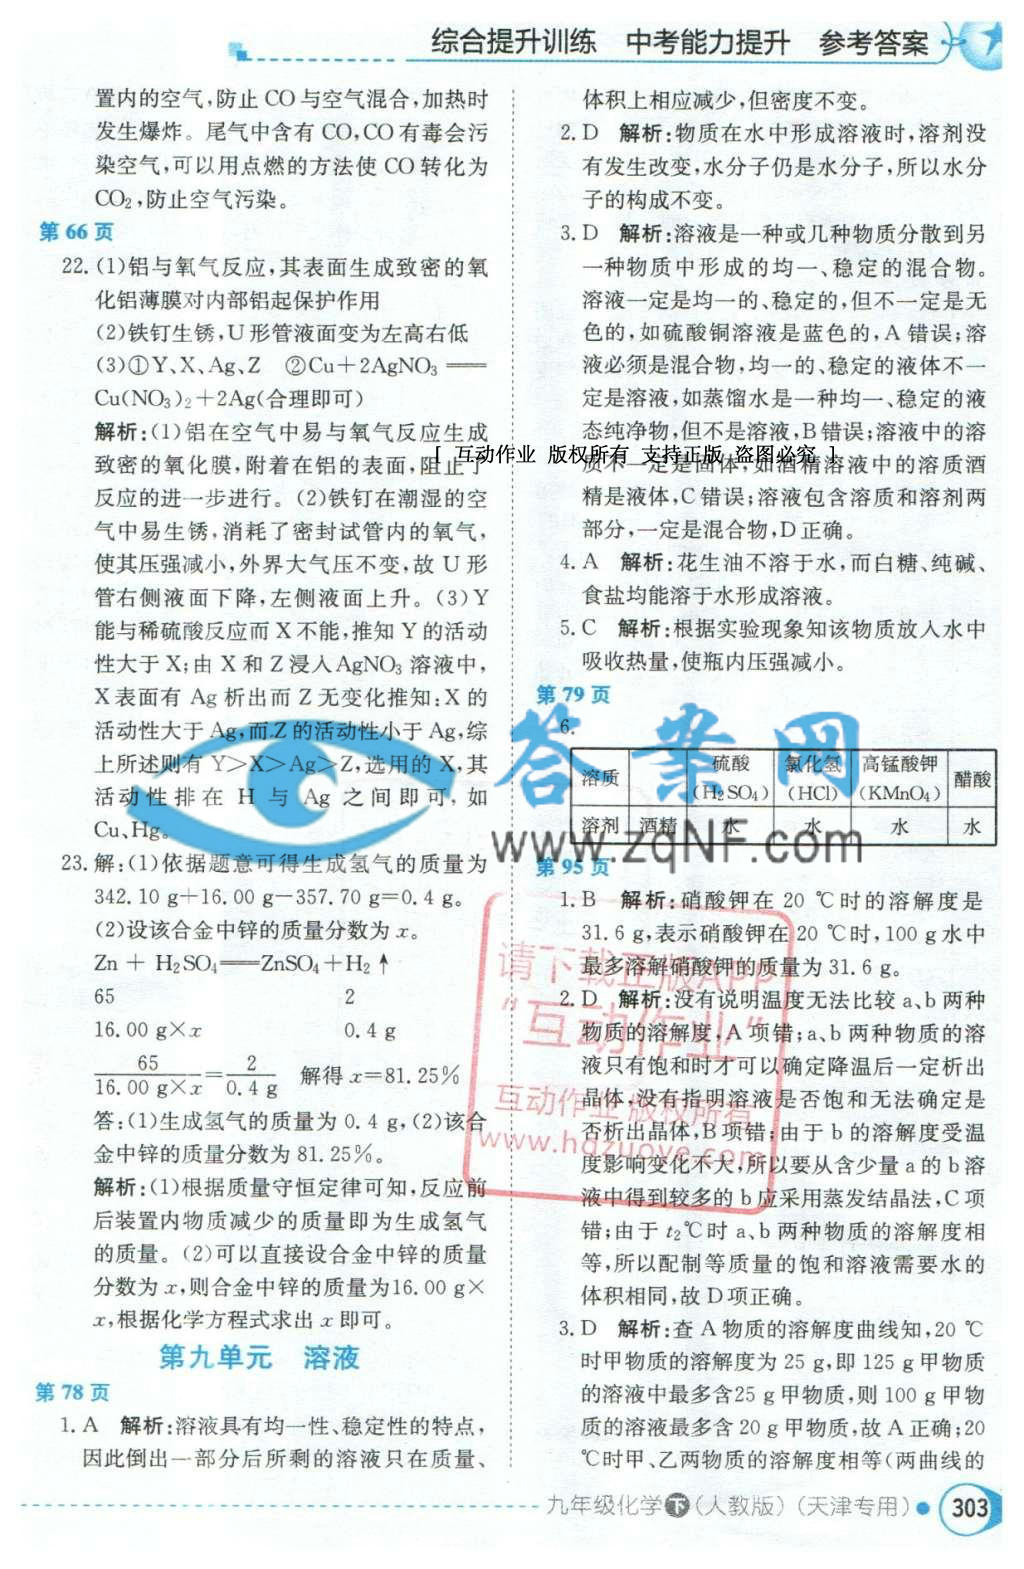 综合提升训练 中考能力提升 参考答案
置内的空气,防止 CO 与空气混合,加热时
发生爆炸。尾气中含有 CO,CO 有毒会污
染空气,可以用点燃的方法使 CO 转化为
CO₂,防止空气污染。
第 66 页
22. (1)铝与氧气反应,其表面生成致密的氧
化铝薄膜对内部铝起保护作用
(2)铁钉生锈,U 形管液面变为左高右低
(3)①Y、X、Ag、Z ②Cu+2AgNO₃ ══
Cu(NO₃)₂+2Ag(合理即可)
解析:(1)铝在空气中易与氧气反应生成
致密的氧化膜,附着在铝的表面,阻止了
反应的进一步进行。(2)铁钉在潮湿的空
气中易生锈,消耗了密封试管内的氧气,
使其压强减小,外界大气压不变,故 U 形
管右侧液面下降,左侧液面上升。(3)Y
能与稀硫酸反应而 X 不能,推知 Y 的活动
性大于 X;由 X 和 Z 浸入AgNO₃ 溶液中,
X 表面有 Ag 析出而 Z 无变化推知:X 的
活动性大于 Ag,而 Z 的活动性小于 Ag,综
上所述则有 Y>X>Ag>Z,选用的 X,其
活动性排在 H 与 Ag 之间即可,如
Cu、Hg。
23. 解:(1)依据题意可得生成氢气的质量为
342.10 g+16.00 g-357.70 g=0.4 g。
(2)设该合金中锌的质量分数为 x。
Zn + H₂SO₄══ZnSO₄+H₂↑
65 2
16.00 g×x 0.4 g
65/(16.00 g×x)=2/(0.4 g) 解得 x=81.25%
答:(1)生成氢气的质量为 0.4 g,(2)该合
金中锌的质量分数为 81.25%。
解析:(1)根据质量守恒定律可知,反应前
后装置内物质减少的质量即为生成氢气
的质量。(2)可以直接设合金中锌的质量
分数为 x,则合金中锌的质量为16.00 g×
x,根据化学方程式求出 x 即可。
第九单元 溶液
第 78 页
1. A 解析:溶液具有均一性、稳定性的特点,
因此倒出一部分后所剩的溶液只在质量、
体积上相应减少,但密度不变。
2. D 解析:物质在水中形成溶液时,溶剂没
有发生改变,水分子仍是水分子,所以水分
子的构成不变。
3. D 解析:溶液是一种或几种物质分散到另
一种物质中形成的均一、稳定的混合物。
溶液一定是均一的、稳定的,但不一定是无
色的,如硫酸铜溶液是蓝色的,A 错误;溶
液必须是混合物,均一的、稳定的液体不一
定是溶液,如蒸馏水是一种均一、稳定的液
态纯净物,但不是溶液,B 错误;溶液中的溶
[ 互动作业 版权所有 支持正版 盗图必究 ]
质不一定是固体,如酒精溶液中的溶质酒
精是液体,C 错误;溶液包含溶质和溶剂两
部分,一定是混合物,D 正确。
4. A 解析:花生油不溶于水,而白糖、纯碱、
食盐均能溶于水形成溶液。
5. C 解析:根据实验现象知该物质放入水中
吸收热量,使瓶内压强减小。
第 79 页
6.
溶质 硫酸(H₂SO₄) 氯化氢(HCl) 高锰酸钾(KMnO₄) 醋酸
溶剂 酒精 水 水 水 水
答案网
www.zqNF.com
第 95 页
1. B 解析:硝酸钾在 20 ℃时的溶解度是
31.6 g,表示硝酸钾在 20 ℃时,100 g 水中
最多溶解硝酸钾的质量为 31.6 g。
2. D 解析:没有说明温度无法比较 a、b 两种
物质的溶解度,A 项错;a、b 两种物质的溶
液只有饱和时才可以确定降温后一定析出
晶体,没有指明溶液是否饱和无法确定是
否析出晶体,B 项错;由于 b 的溶解度受温
度影响变化不大,所以要从含少量 a 的 b 溶
液中得到较多的 b 应采用蒸发结晶法,C 项
错;由于 t₂℃时 a、b 两种物质的溶解度相
等,所以配制等质量的饱和溶液需要水的
体积相同,故 D 项正确。
3. D 解析:查 A 物质的溶解度曲线知,20 ℃
时甲物质的溶解度为 25 g,即 125 g 甲物质
的溶液中最多含25 g 甲物质,则 100 g 甲物
质的溶液最多含 20 g 甲物质,故 A 正确;20
℃时甲、乙两物质的溶解度相等(两曲线的
请下载正版APP
“互动作业”
互动作业 版权所有
www.hdzuoye.com
九年级化学下(人教版)(天津专用) 303